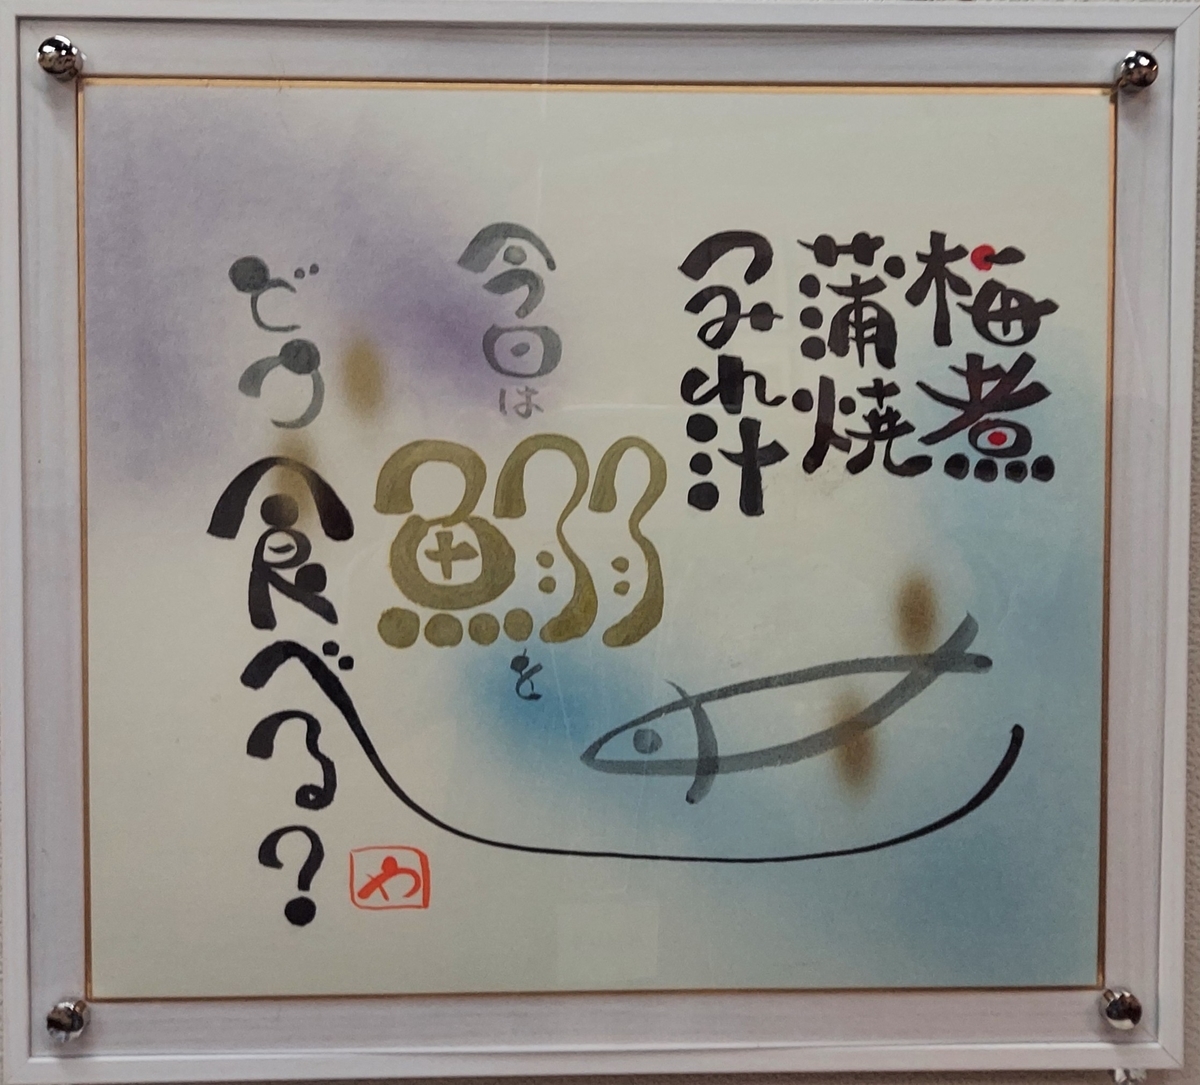 梅煮
蒲焼
つみれ汁
今日は
鰯を
どう食べる?
や